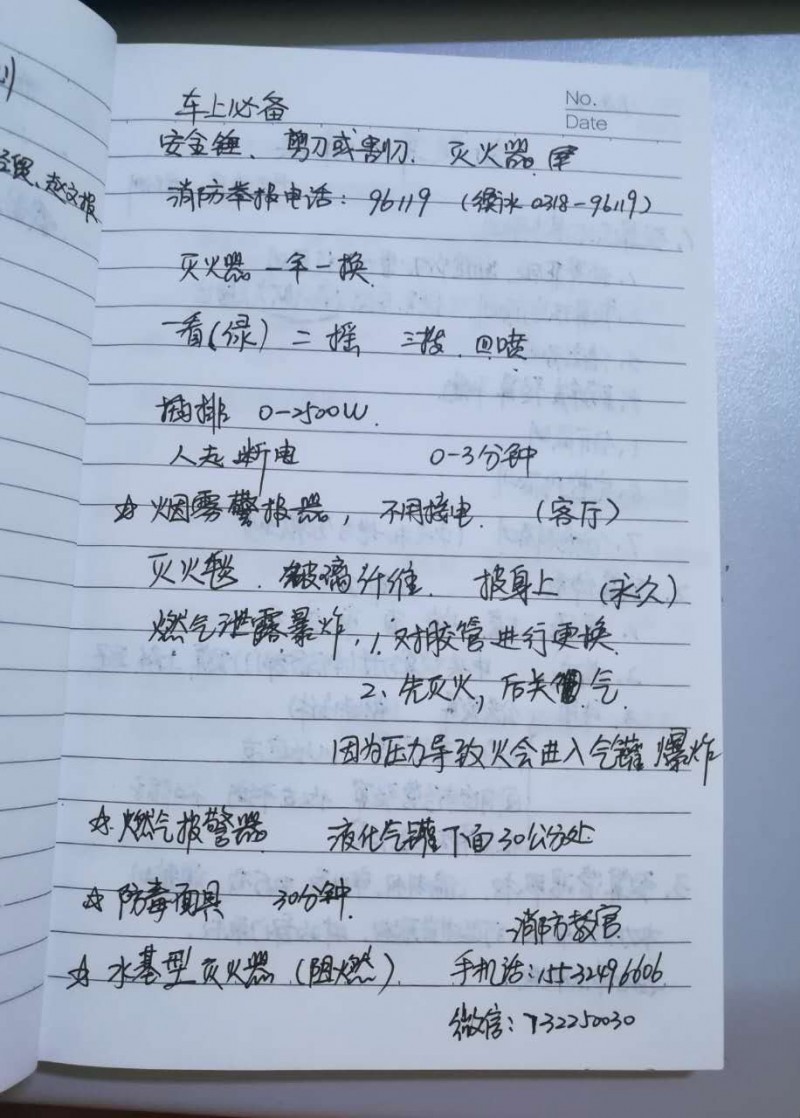 No.
Date
车上必备
安全锤、剪刀或割刀、灭火器
消防举报电话：96119 (衡水0318-96119)
灭火器一年一换
一看(绿) 二摇 三拔 四喷
插排 0-2500W.
人走断电 0-3分钟
☆烟雾警报器，不用接电. (客厅)
灭火毯. 玻璃纤维. 披身上 (永久)
燃气泄露暴炸, 1. 对胶管进行更换.
2、先灭火，后关气.
因为压力导致火会进入气罐爆炸
☆燃气报警器 液化气罐下面30公分处
☆防毒面具 30分钟.
消防教官
☆水基型灭火器 (阻燃). 手机话:15532496606
微信: 732250030
赵文报